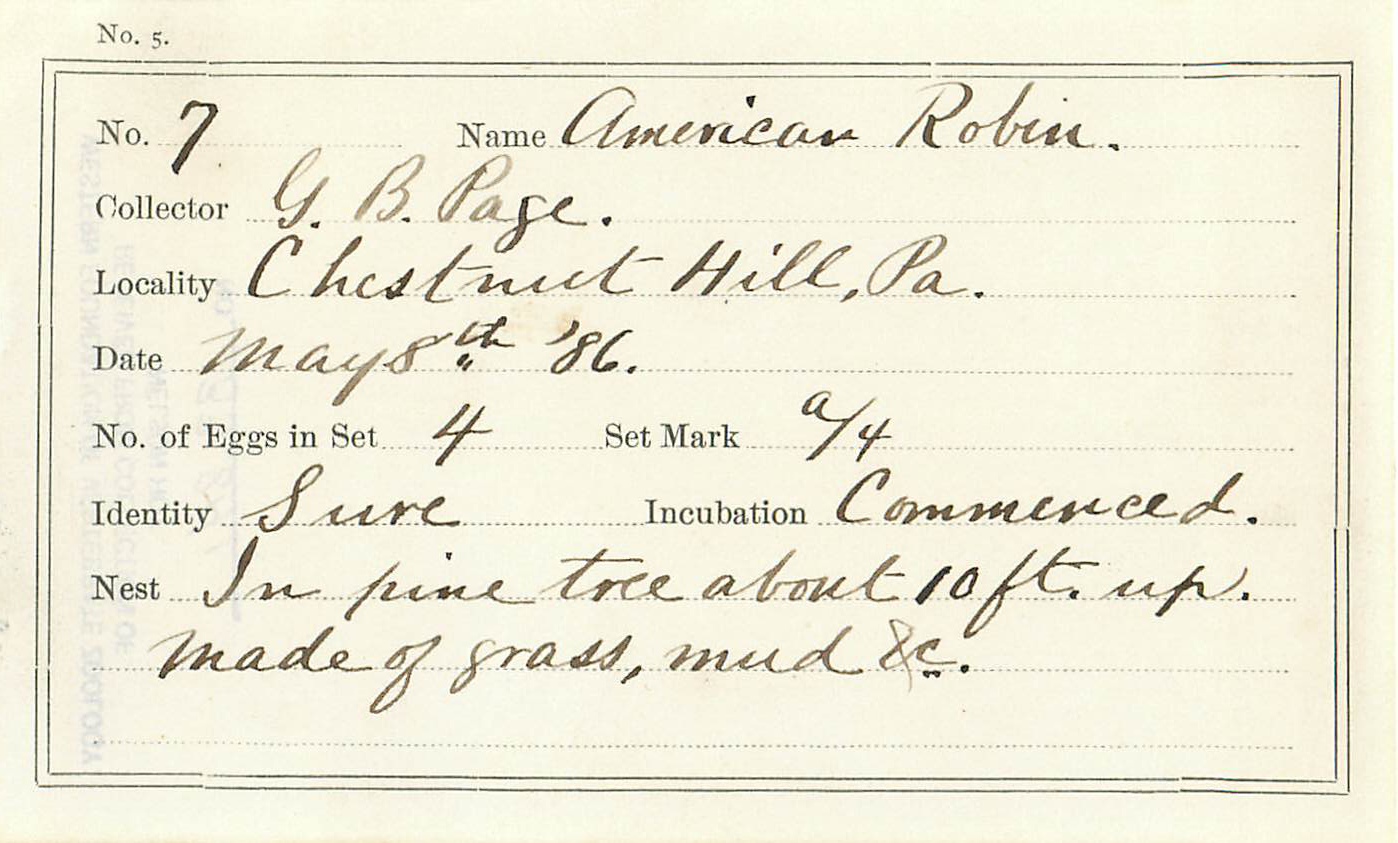 No. 5.
No. 7 Name American Robin.
Collector G. B. Page.
Locality Chestnut Hill, Pa.
Date May 8th '86.
No. of Eggs in Set 4 Set Mark a/4
Identity Sure Incubation Commenced.
Nest In pine tree about 10 ft. up.
Made of grass, mud &c.